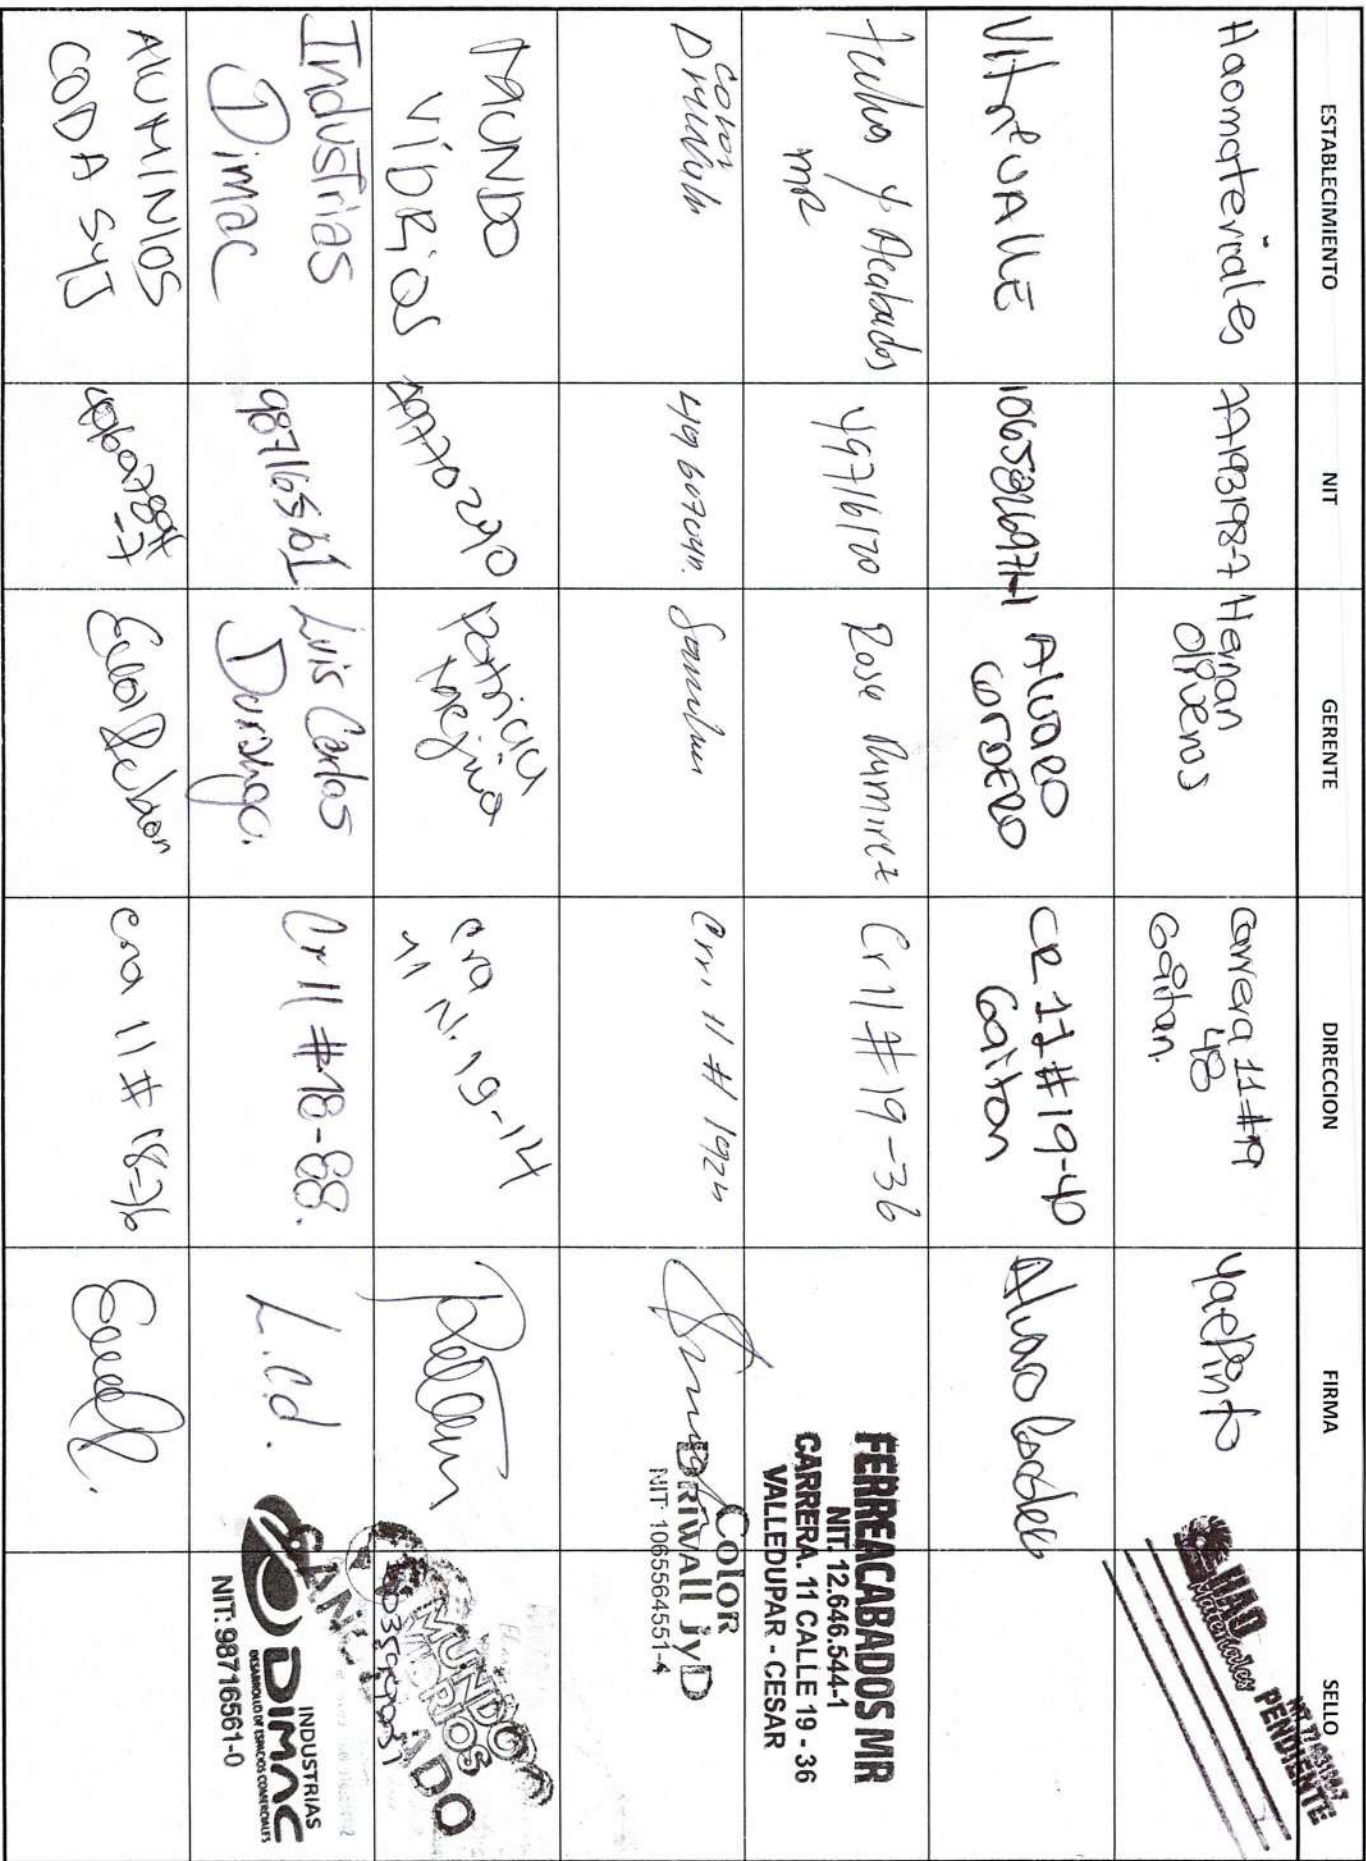 ESTABLECIMIENTO
NIT
GERENTE
DIRECCION
FIRMA
SELLO
Haomateriales
77193198-7
Hernan
Oliveros
Carrera 11 #19
48
Gaitan.
YaePinto
HAO
Materiales
PENDIENTE
VitrEVAllE
Alvaro
CorDERO
CR 11 #19-40
Gaitan
Alvaro
y Acabados
MR
49716170
Rosa Ramirez
Cr 11 # 19-36
FERREACABADOS MR
NIT. 12.646.544-1
CARRERA. 11 CALLE 19 - 36
VALLEDUPAR - CESAR
Color
Crr. 11 # 1924
Color
Briwall JyD
NIT: 1065564551-4
MUNDO
VIDRIOS
49770290
Patricia
cra
11 N. 19-14
MUNDO
VIDRIOS
Industrias
Dimac
98716561
Luis Carlos
Durango.
Cr 11 #18-88.
L.C.d.
CANCELADO
INDUSTRIAS
DIMAC
DESARROLLO DE ESPACIOS COMERCIALES
NIT: 98716561-0
AlUMINIOS
CODA SYJ
-7
cra 11 # 18-76